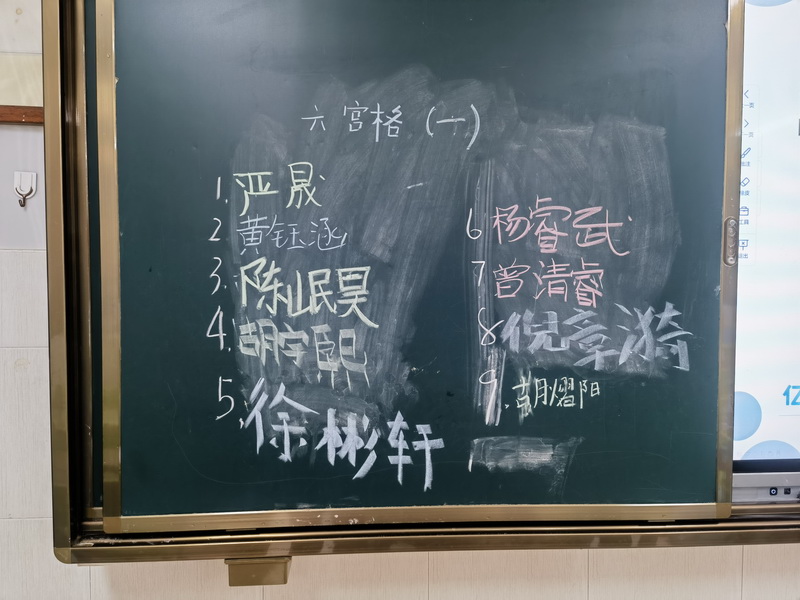 六宫格（一）
1. 严晟
2. 黄钰涵
3. 陈岷昊
4. 胡宇熙
5. 徐彬轩
6 杨睿武
7 曾清睿
8 倪章漪
9. 胡熠阳
亿